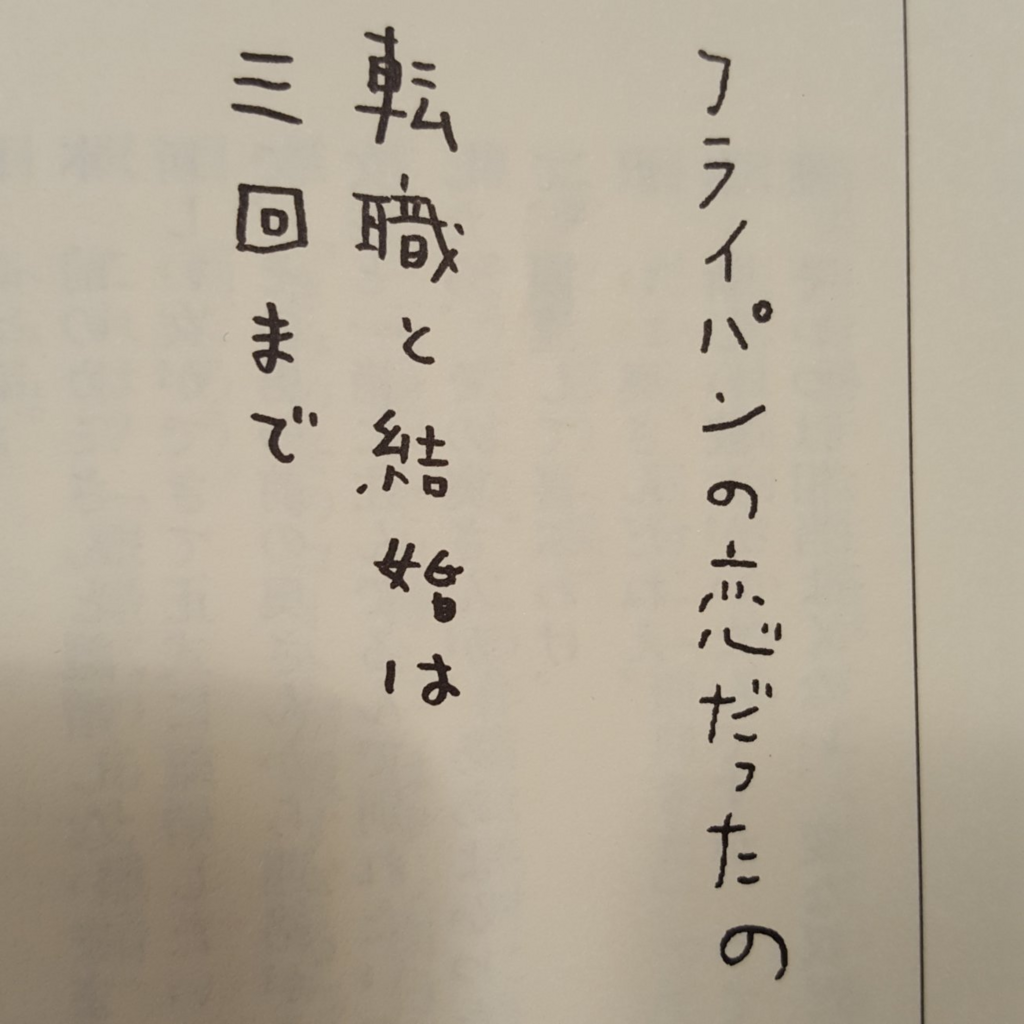 フライパンの恋だったの
転職と結婚は
三回まで